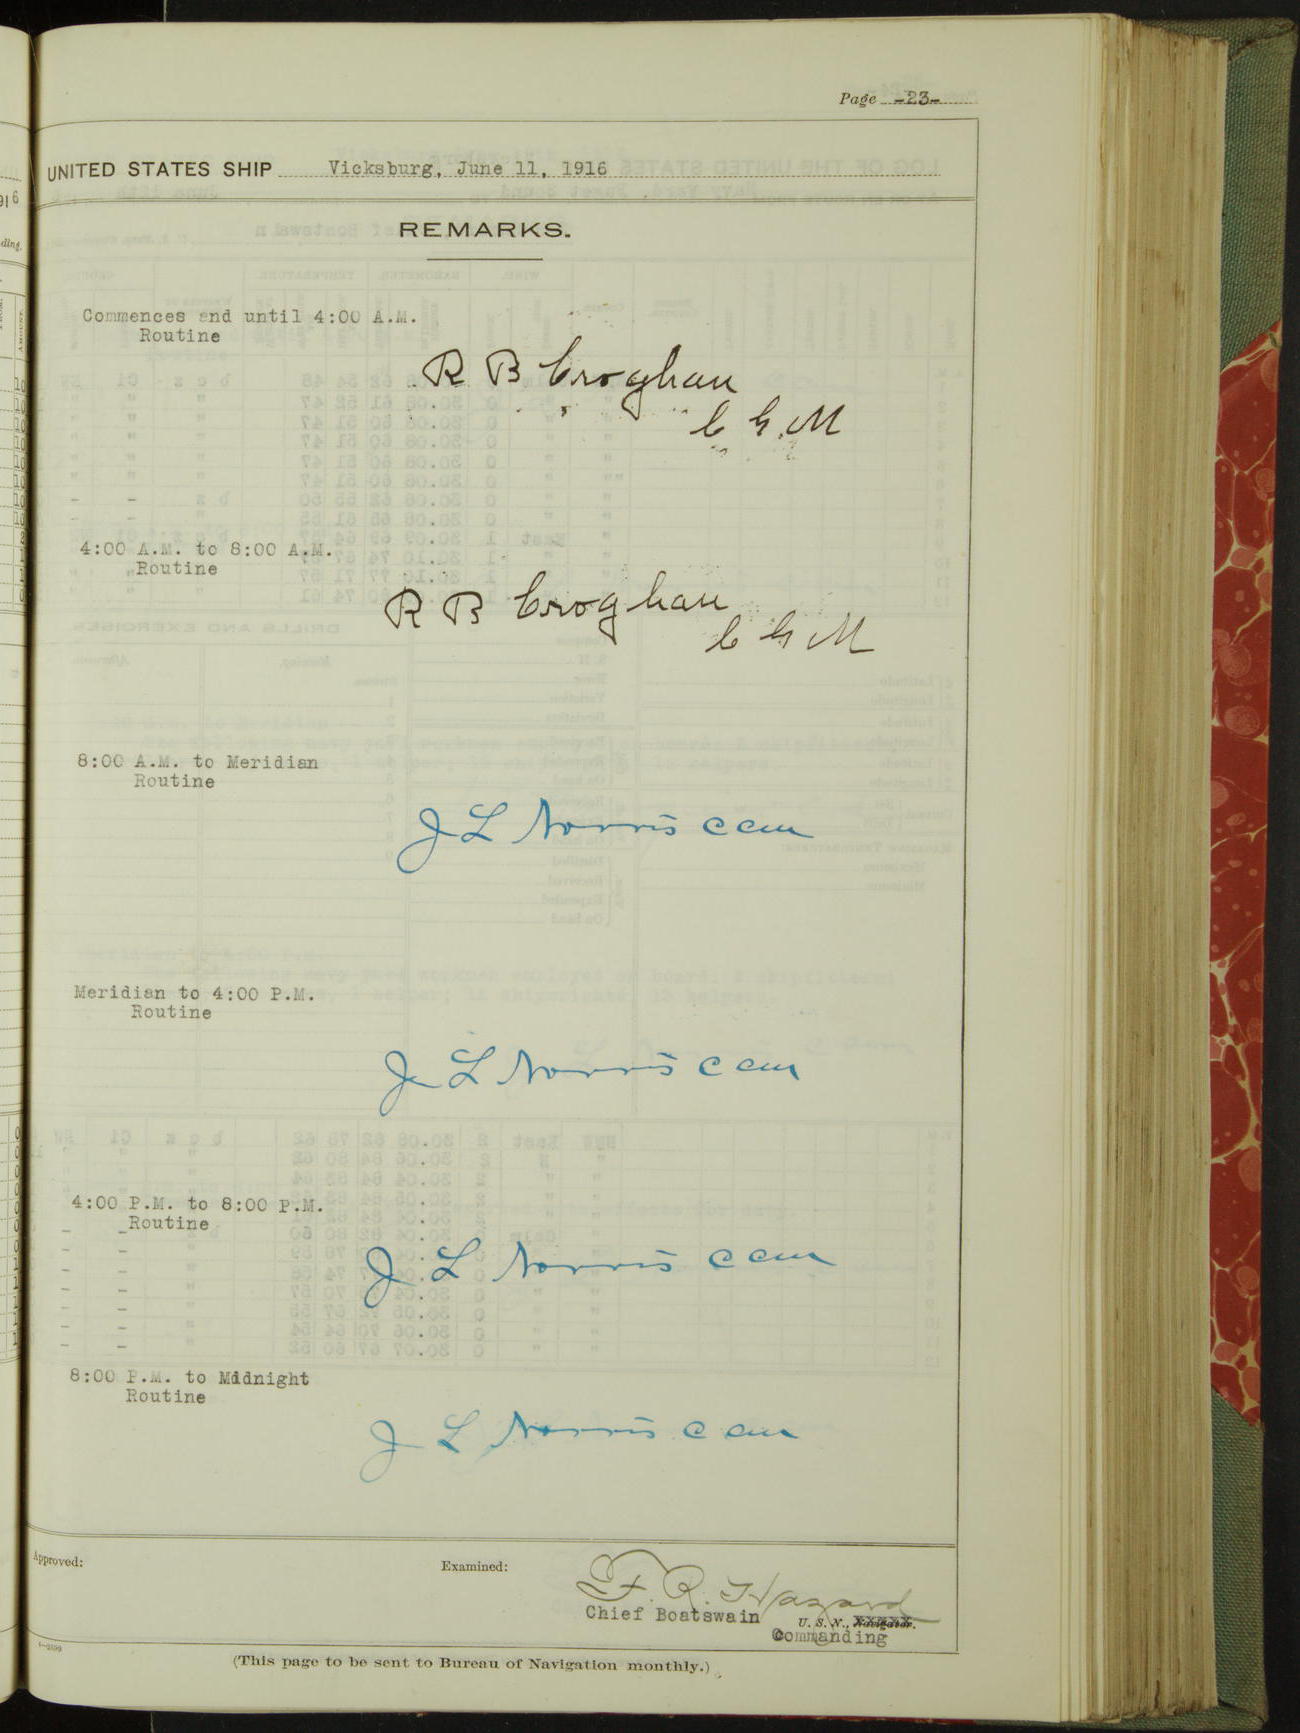 Page -23-
UNITED STATES SHIP Vicksburg, June 11, 1916
REMARKS.
Commences and until 4:00 A.M.
Routine
R B Croghan
C G. M
4:00 A.M. to 8:00 A.M.
Routine
R B Croghan
C G M
8:00 A.M. to Meridian
Routine
J L Norris CCM
Meridian to 4:00 P.M.
Routine
J L Norris CCM
4:00 P.M. to 8:00 P.M.
Routine
J L Norris CCM
8:00 P.M. to Midnight
Routine
J L Norris CCM
Approved:
Examined:
F. R. Hazard
Chief Boatswain U. S. N., Navigator.
Commanding
(This page to be sent to Bureau of Navigation monthly.)